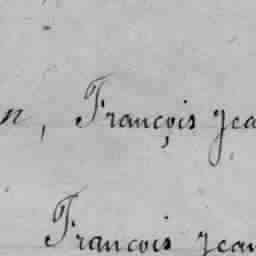 n, François Jea
François Jean